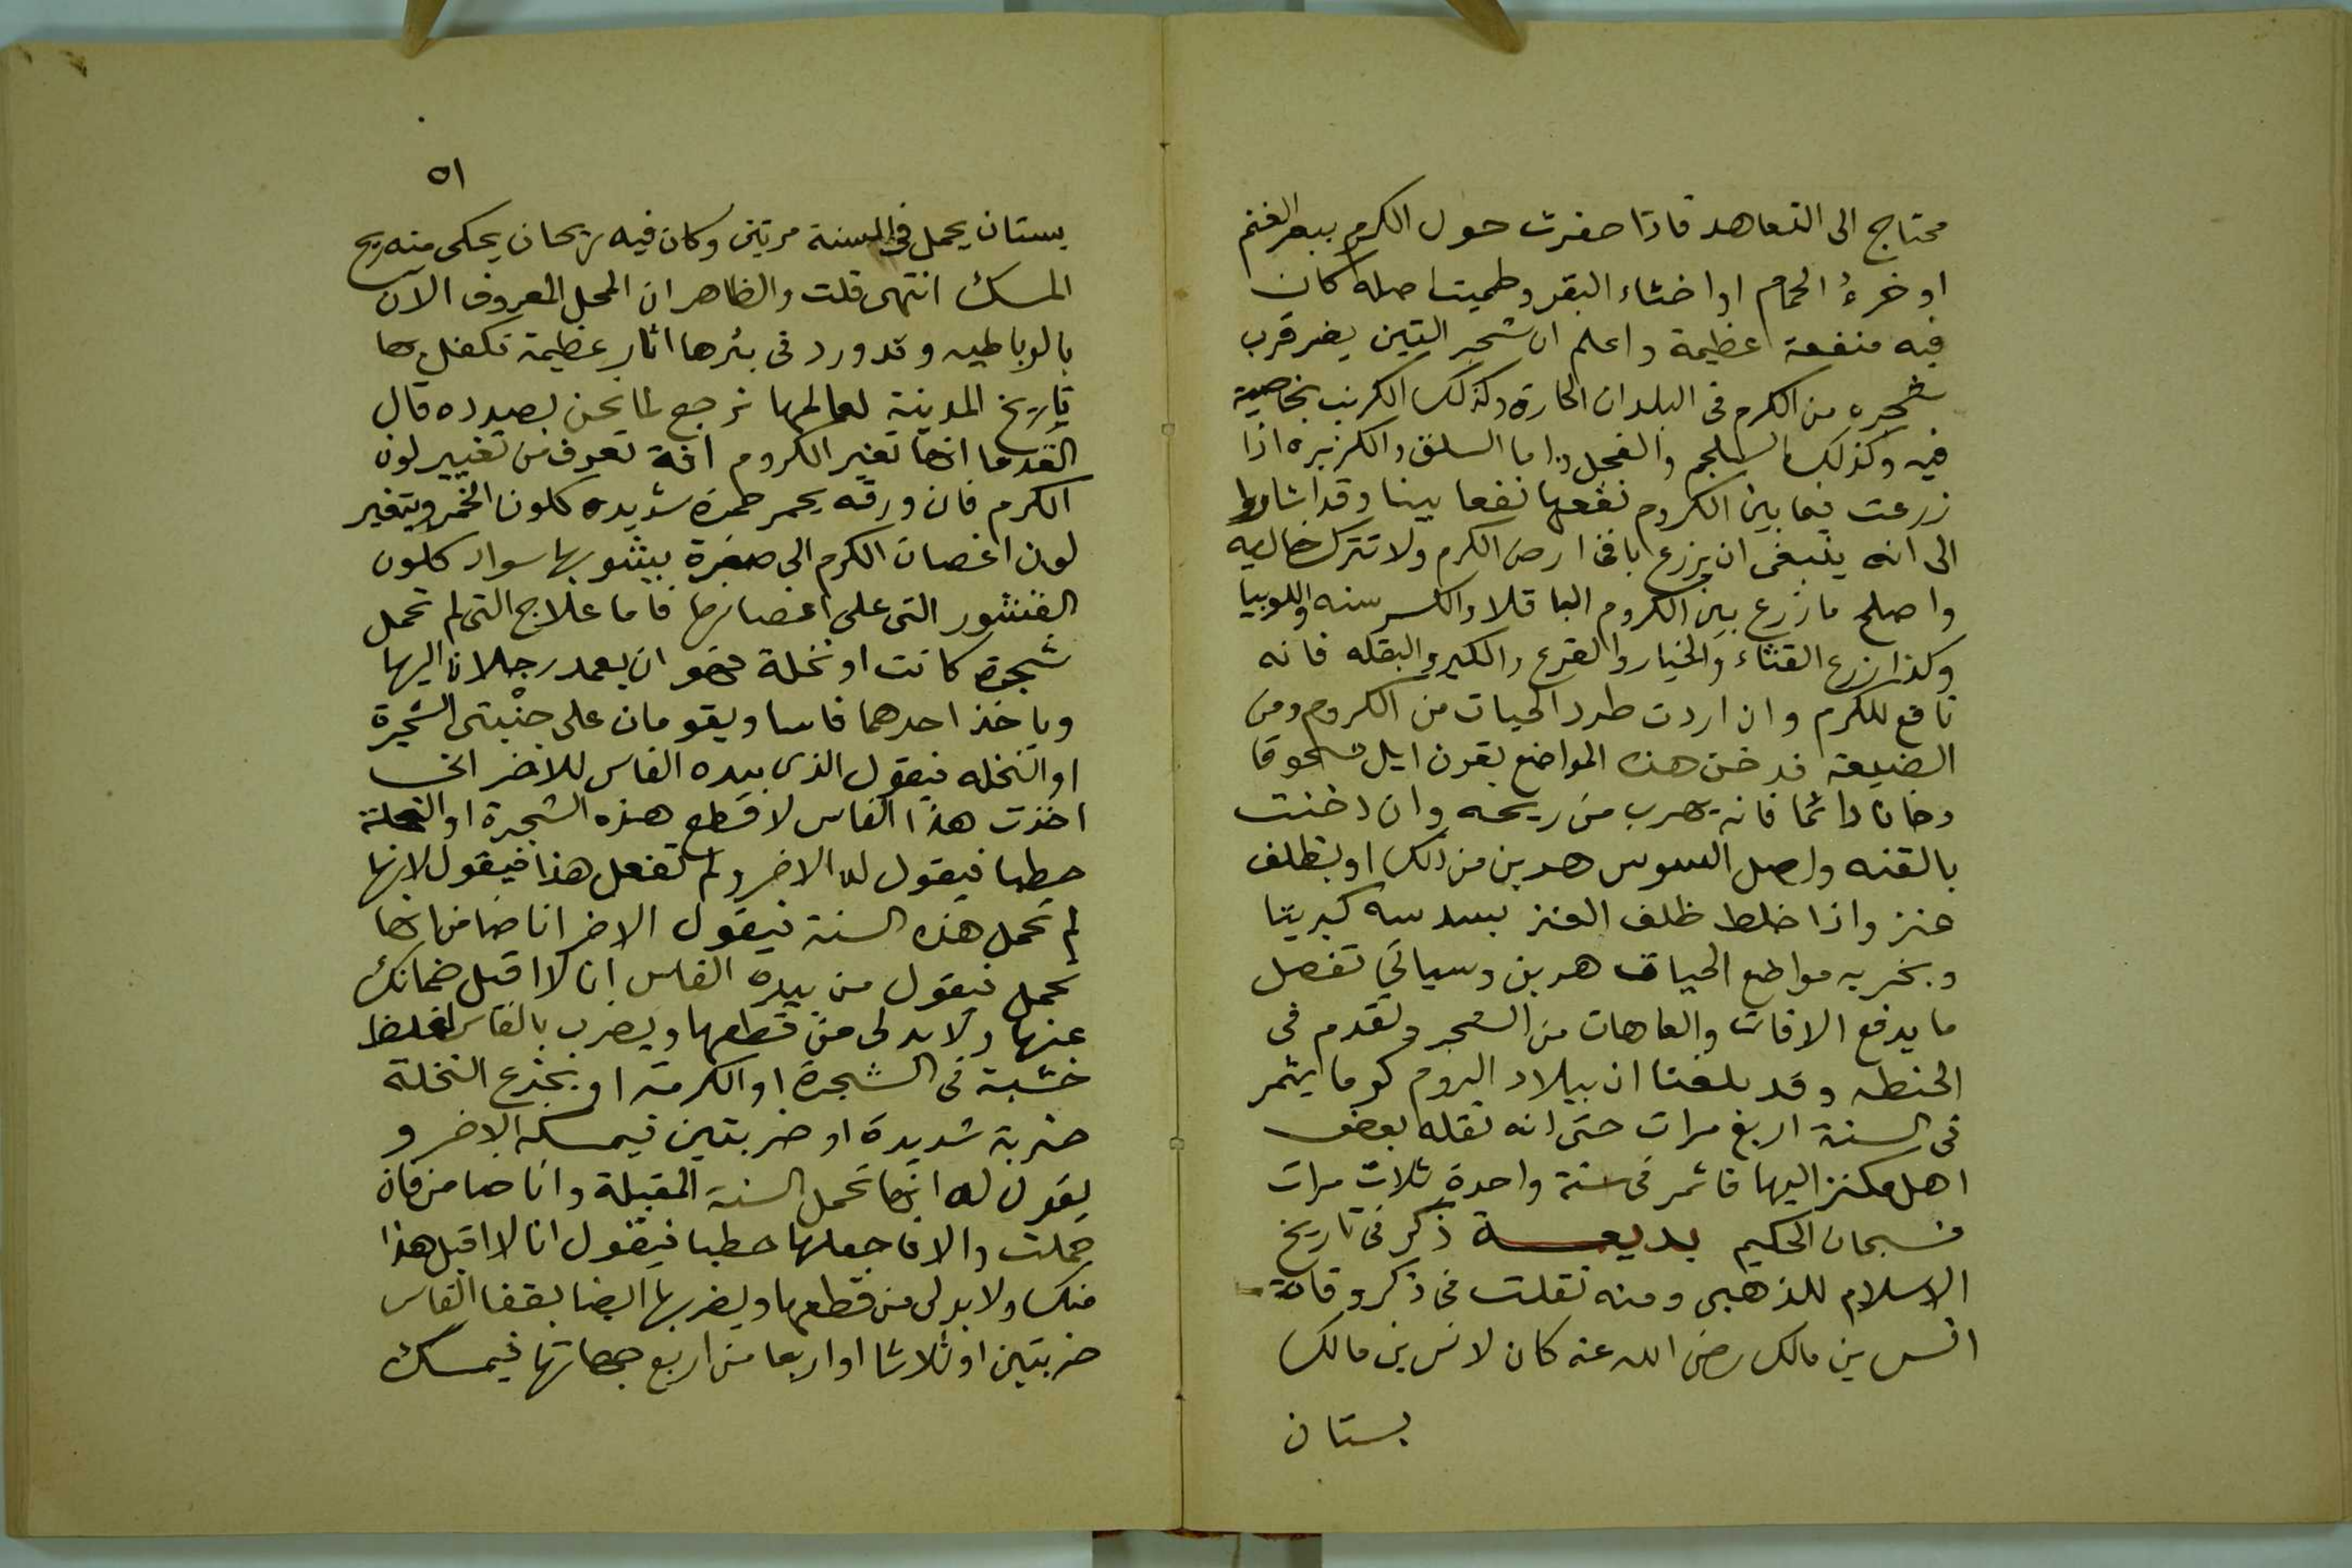 محتاج الى التعاهد فاذا حفرت حول الكرم ببعر الغنم
او خرءُ الحمام او اخثاء البقر وطميت اصله كان
فيه منفعة عظيمة واعلم ان شجر التين يضر قرب
شجره من الكرم فى البلدان الحارة وكذلك الكرنب بخاصية
فيه وكذلك السلجم والفجل واما السلق والكزبره اذا
زرعت فيما بين الكروم نفعها نفعا بينا وقد اشاروا
الى انه ينبغى ان يزرع باقى ارض الكرم ولا تترك خاليه
واصلح ما زرع بين الكروم الباقلا والكرسنه واللوبيا
وكذا زرع القثاء والخيار والقرع والكبر والبقله فانه
نافع للكرم وان اردت طرد الحيات من الكروم ومن
الضيعة فدخن هذه المواضع بقرن ايل مسحوقا
دخانا دائما فانه يهرب من ريحه وان دخنت
بالقنه واصل السوس هربن من ذلك او بظلف
عنز واذا خلط ظلف العنز بسدسه كبريتا
وبخر به مواضع الحيات هربن وسياتي تفصل
ما يدفع الافات والعاهات من الشجر وتقدم فى
الحنطه وقد بلغنا ان ببلاد الروم كوما يثمر
فى السنة اربع مرات حتى انه نقله بعض
اهل اليها فاثمر فى سنة واحدة ثلاث مرات
فسبحان الحكيم بديعــة ذكر فى تاريخ
الاسلام للذهبى ومنه نقلت فى ذكر وفاة
انس بن مالك رضى الله عنه كان لانس بن مالك
بستان
٥١
بستان يحمل فى السنة مرتين وكان فيه ريحان يحكى منه ريح
المسك انتهى قلت والظاهر ان المحل المعروف الان
بالرباطيه وقد ورد فى بئرها اثار عظيمة تكفل بها
تاريخ المدينة لعالمها نرجع لما نحن بصدده قال
القدما انها تغير الكروم افة تعرف من تغيير لون
الكرم فان ورقه يحمر حمرة شديده كلون الخمر ويتغير
لون اغصان الكرم الى صفرة يشوبها سواد كلون
القشور التى على اغصانها فاما علاج التى لم تحمل
شجرة كانت او نخلة فهو ان يعمد رجلان اليها
وياخذ احدهما فاسا ويقومان على جنْبتى الشجرة
او النخله فيقول الذى بيده الفاس للاخر انى
اخذت هذا الفاس لاقطع هذه الشجرة او النخلة
حطبا فيقول له الاخر ولم تفعل هذا فيقول لانها
لم تحمل هذه السنة فيقول الاخر انا ضامن انها
تحمل فيقول من بيده الفاس انا لا اقبل ضمانك
عنها ولا بد لى من قطعها ويضرب بالفاس اغلظ
خشبة فى الشجرة او الكرمة او بجذع النخلة
ضربة شديدة او ضربتين فيمسكه الاخر و
يقول له انها تحمل السنة المقبلة وانا ضامن فان
حملت والا فاجعلها حطبا فيقول انا لا اقبل هذا
منك ولا بد لى من قطعها ويضربها ايضا بقفا الفاس
ضربتين او ثلاثا او اربعا من اربع جهاتها فيمسك